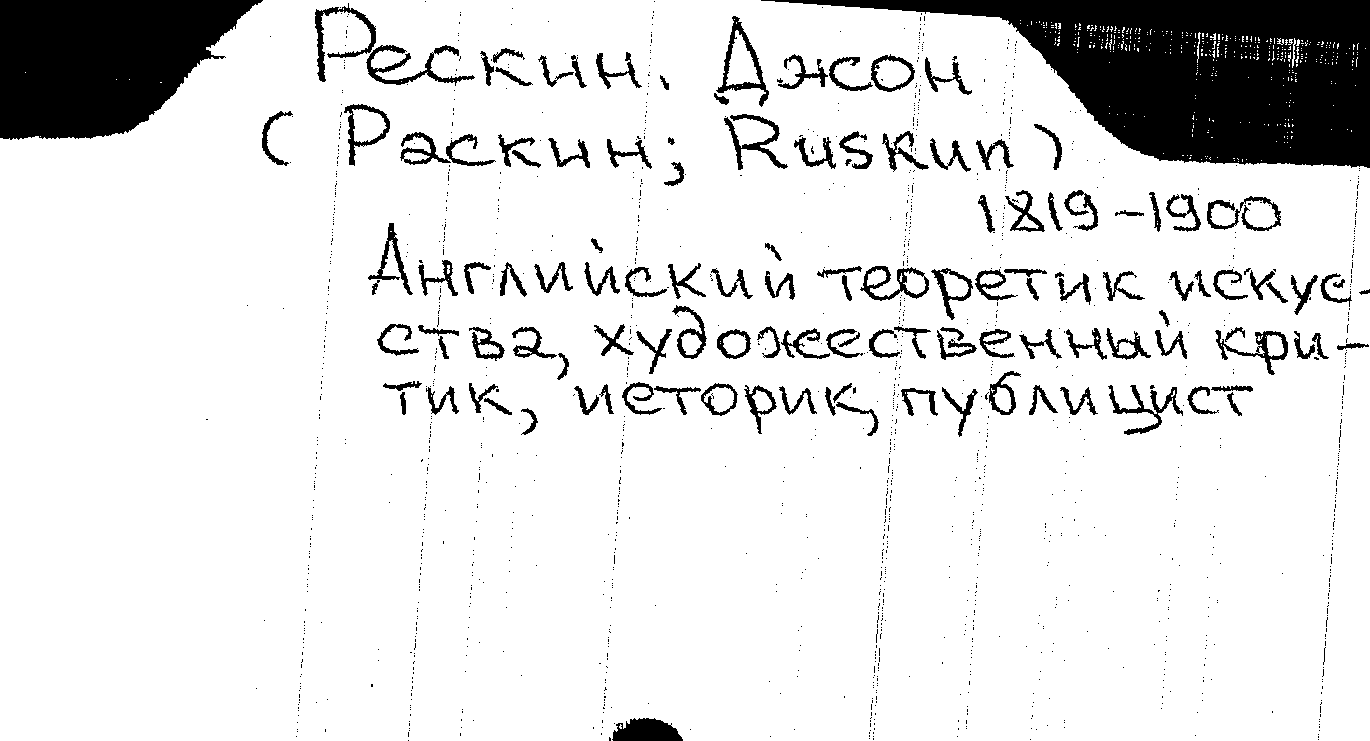 Рескин, Джон
(Раскин; Ruskin)
1819-1900
Английский теоретик искус-
ства, художественный кри-
тик, историк, публицист